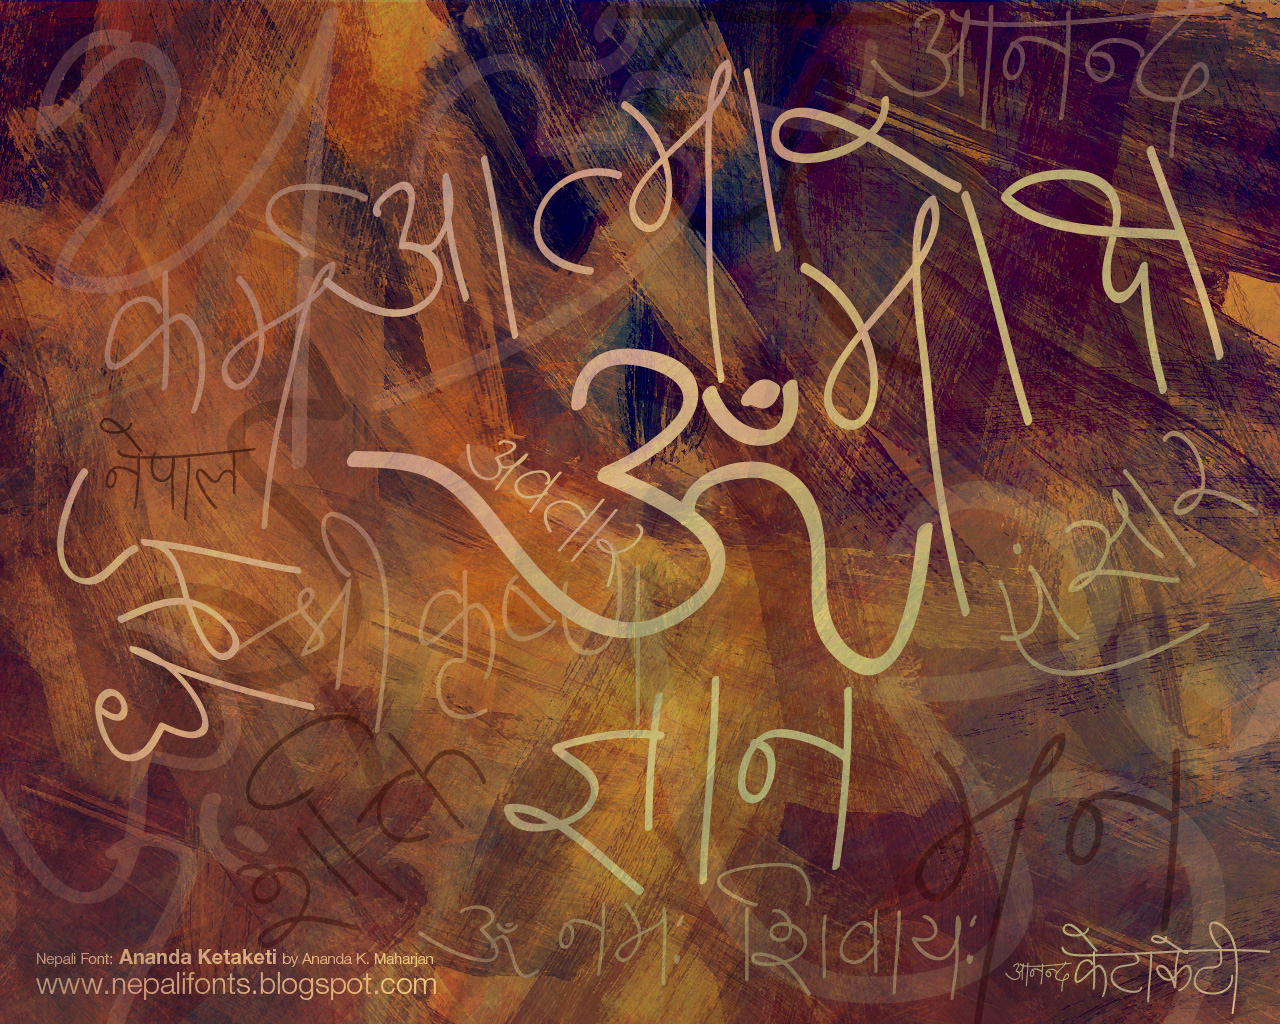 आनन्द
आत्मा
माया
कर्म
ॐ
नेपाल
अवतार
संसार
धर्म
श्रीकृष्ण
ज्ञान
शान्ति
मन
ॐ नमः शिवायः
आनन्द केटाकेटी
Nepali Font: Ananda Ketaketi by Ananda K. Maharjan
www.nepalifonts.blogspot.com